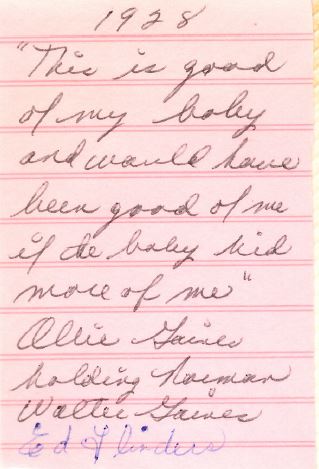 1928
"This is good
of my baby
and would have
been good of me
if the baby hid
more of me"
Ollie Gaines
holding Norman
Walter Gaines
Ed Flinders